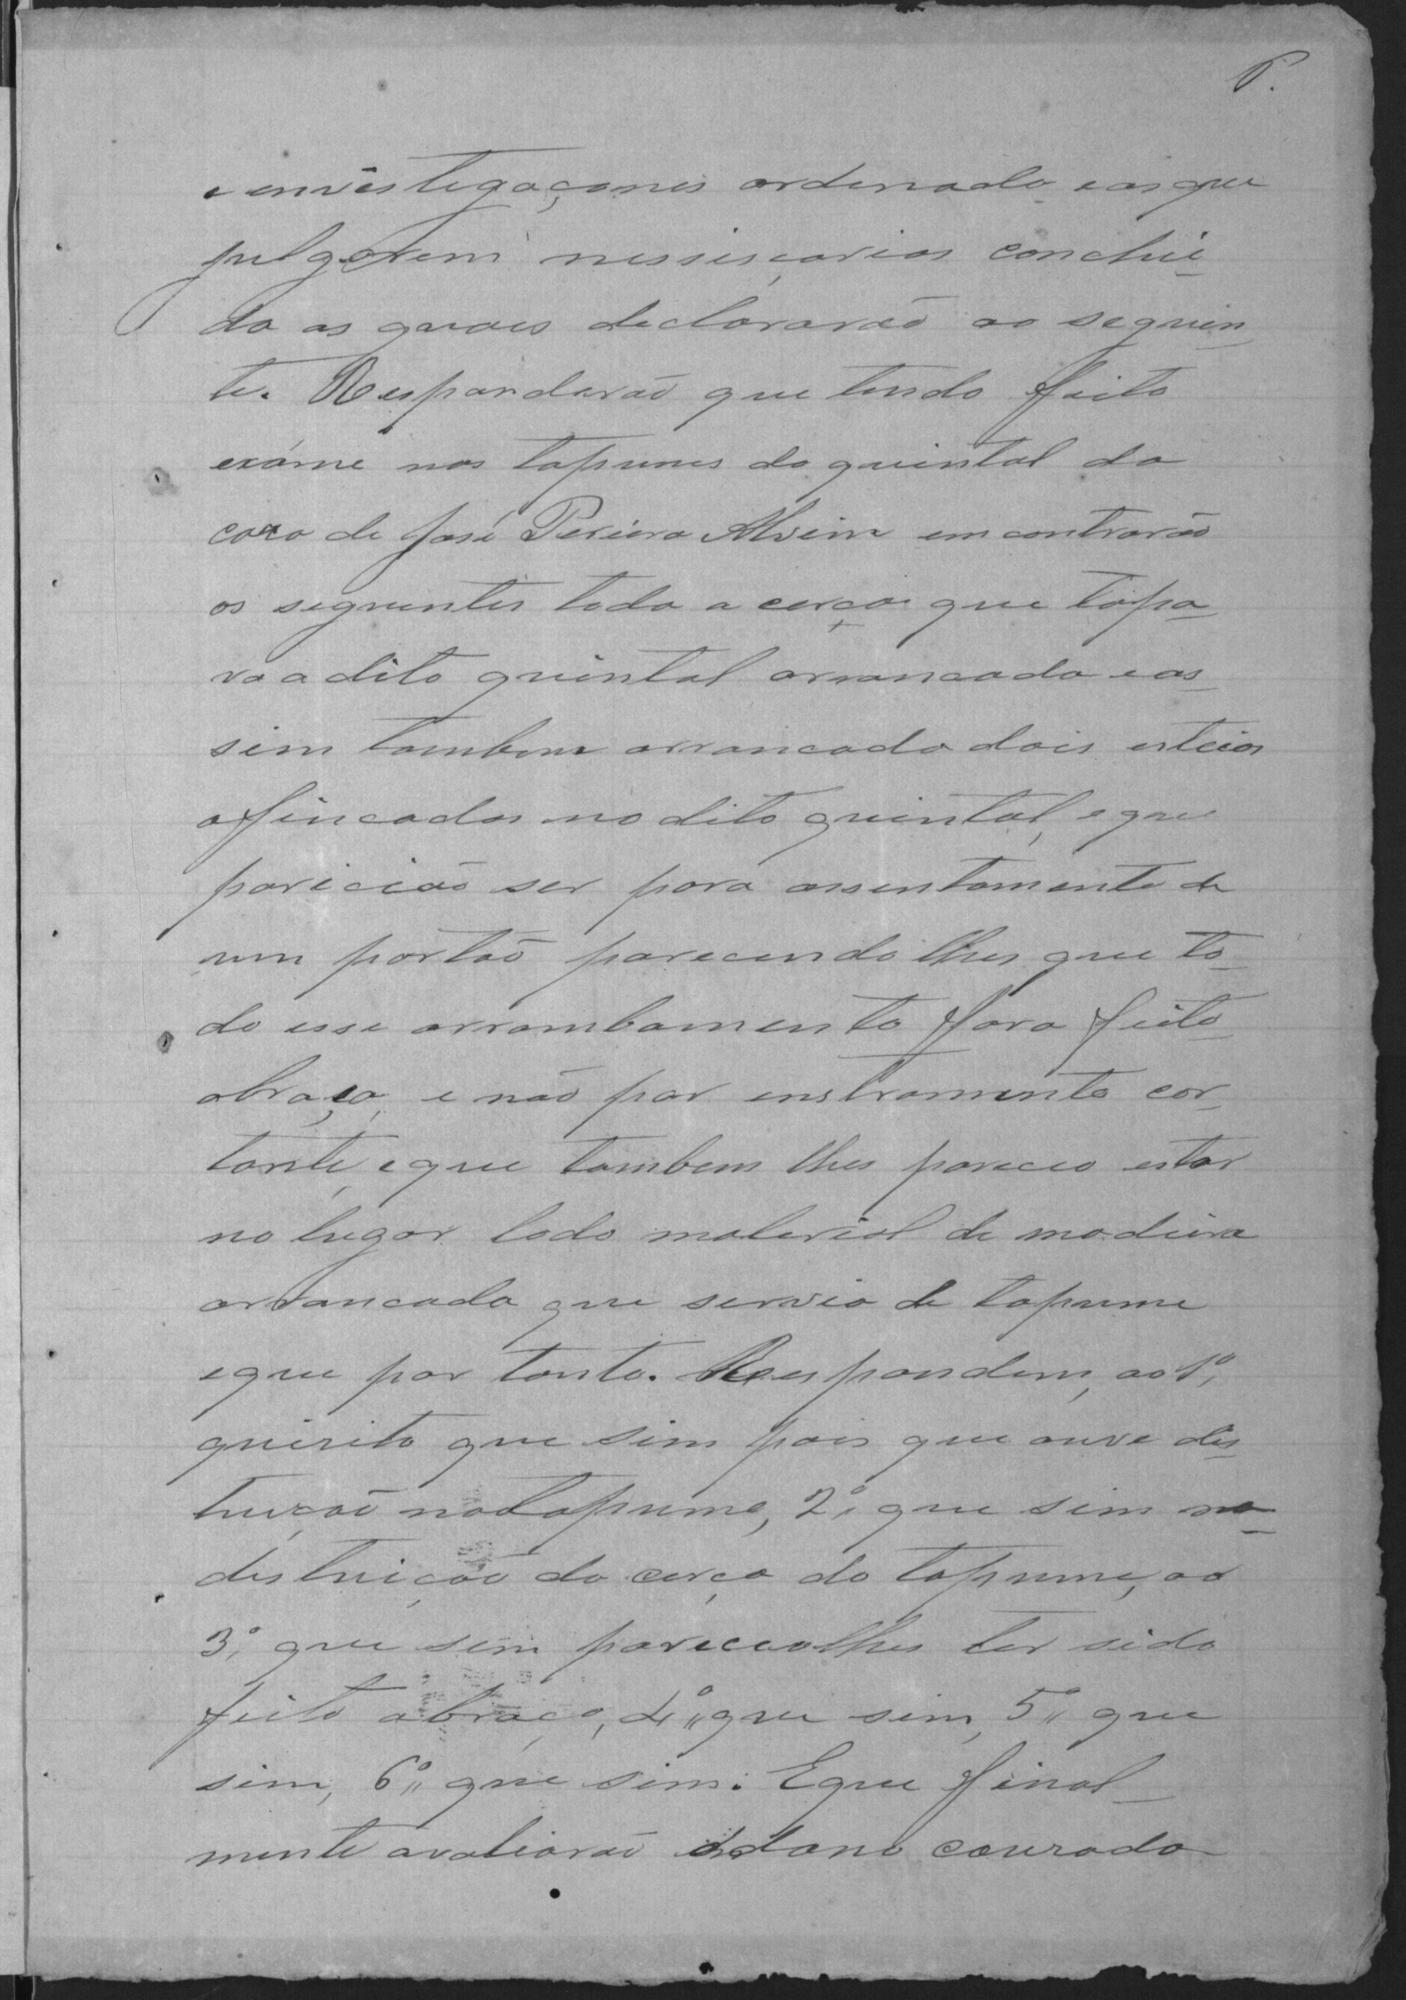 e envestegaçones ordenado e as que
julgarem nessesçarias conclui-
da as quaes declararão ao seguin-
te. Responderão que tendo feito
exáme nos tapumes do quintal da
caza de José Pereira Alvim emcontrarão
os seguentes toda a cerça que tapa-
va a dito quintal arrancada e as-
sim tambem arrancado dois esteios
afincados no dito quintal, e que
paricião ser para assentamento de
um portão parecendo lhes que to-
do esse arrombamento fora feito
abraço, e não por enstromento cor-
tante, e que tambem lhes pareceo estar
no lugar todo material de madeira
arrancada que servia de tapume
e que por tanto. Respondem, ao 1º,
quisito que sim pois que ouve des-
truição no tapume, 2º, que sim na
destruição da cerça do tapume, ao
3º, que sim pareceo lhes ter sido
feito abraço, 4º,, que sim, 5º,, que
sim, 6º,, que sim. E que final-
mente avaliarão o dano cauzado